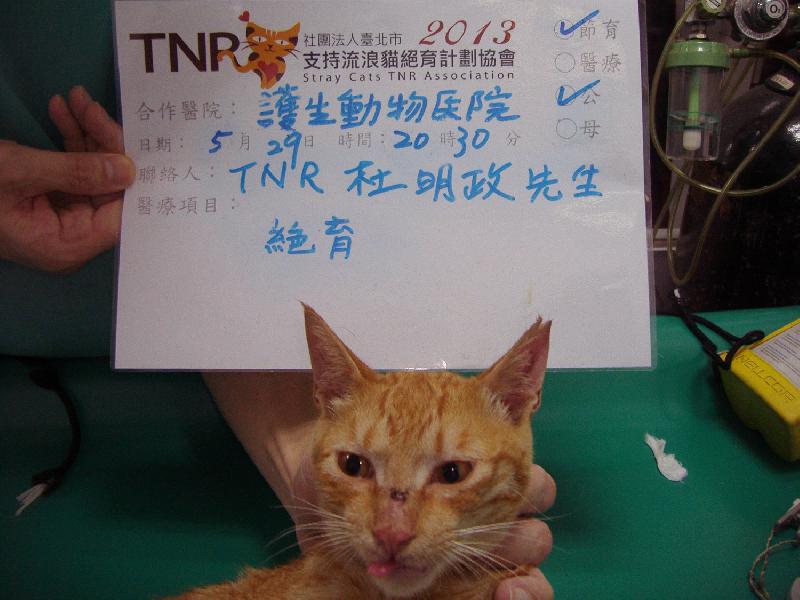 TNR 社團法人臺北市 2013
支持流浪貓絕育計劃協會
Stray Cats TNR Association
✓節育
○醫療
✓公
○母
合作醫院：護生動物医院
日期：5月29日 時間：20時30分
聯絡人：TNR 杜明政先生
醫療項目：
絕育
NELLCOR